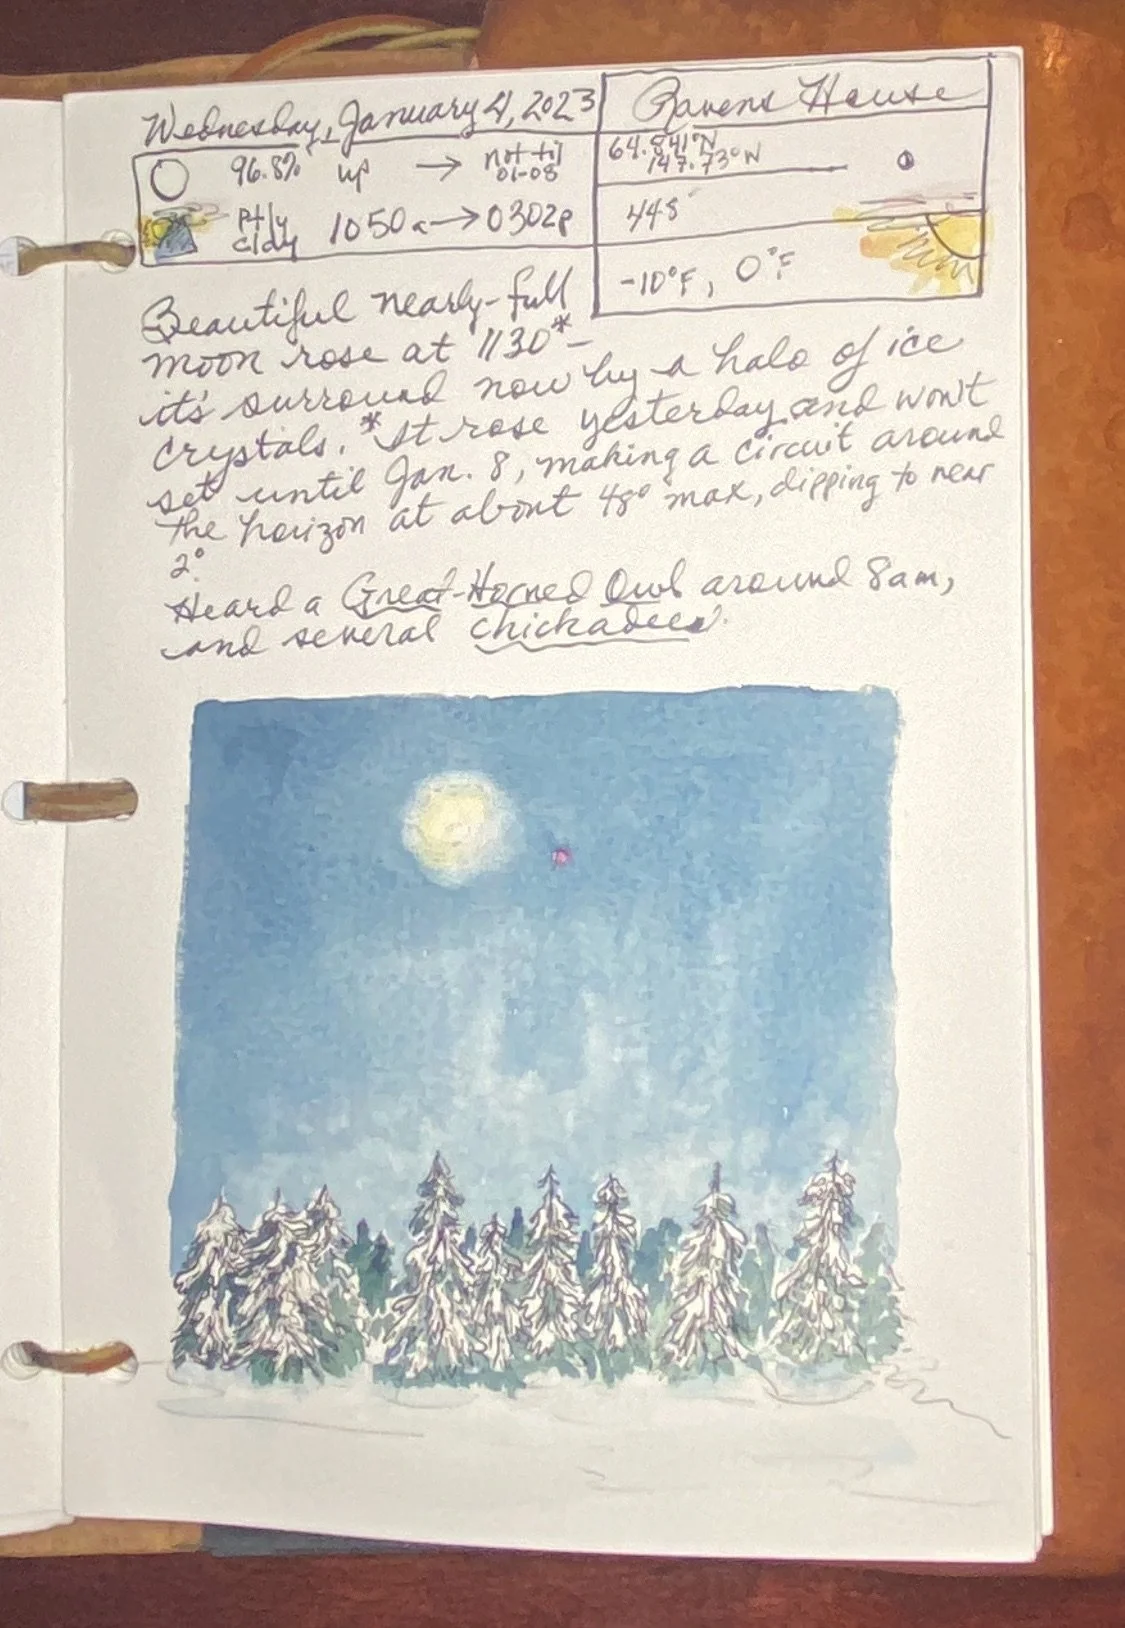 Wednesday, January 4, 2023
Ravens House
96.8% up → not til
01-08
ptly
cldy 1050a → 0302p
64.841°N
147.73°W
448'
-10°F, 0°F
Beautiful nearly-full
moon rose at 1130* –
it's surround now by a halo of ice
crystals. *It rose yesterday and won't
set until Jan. 8, making a circuit around
the horizon at about 48° max, dipping to near
2°.
Heard a Great-Horned Owl around 8am,
and several chickadees.